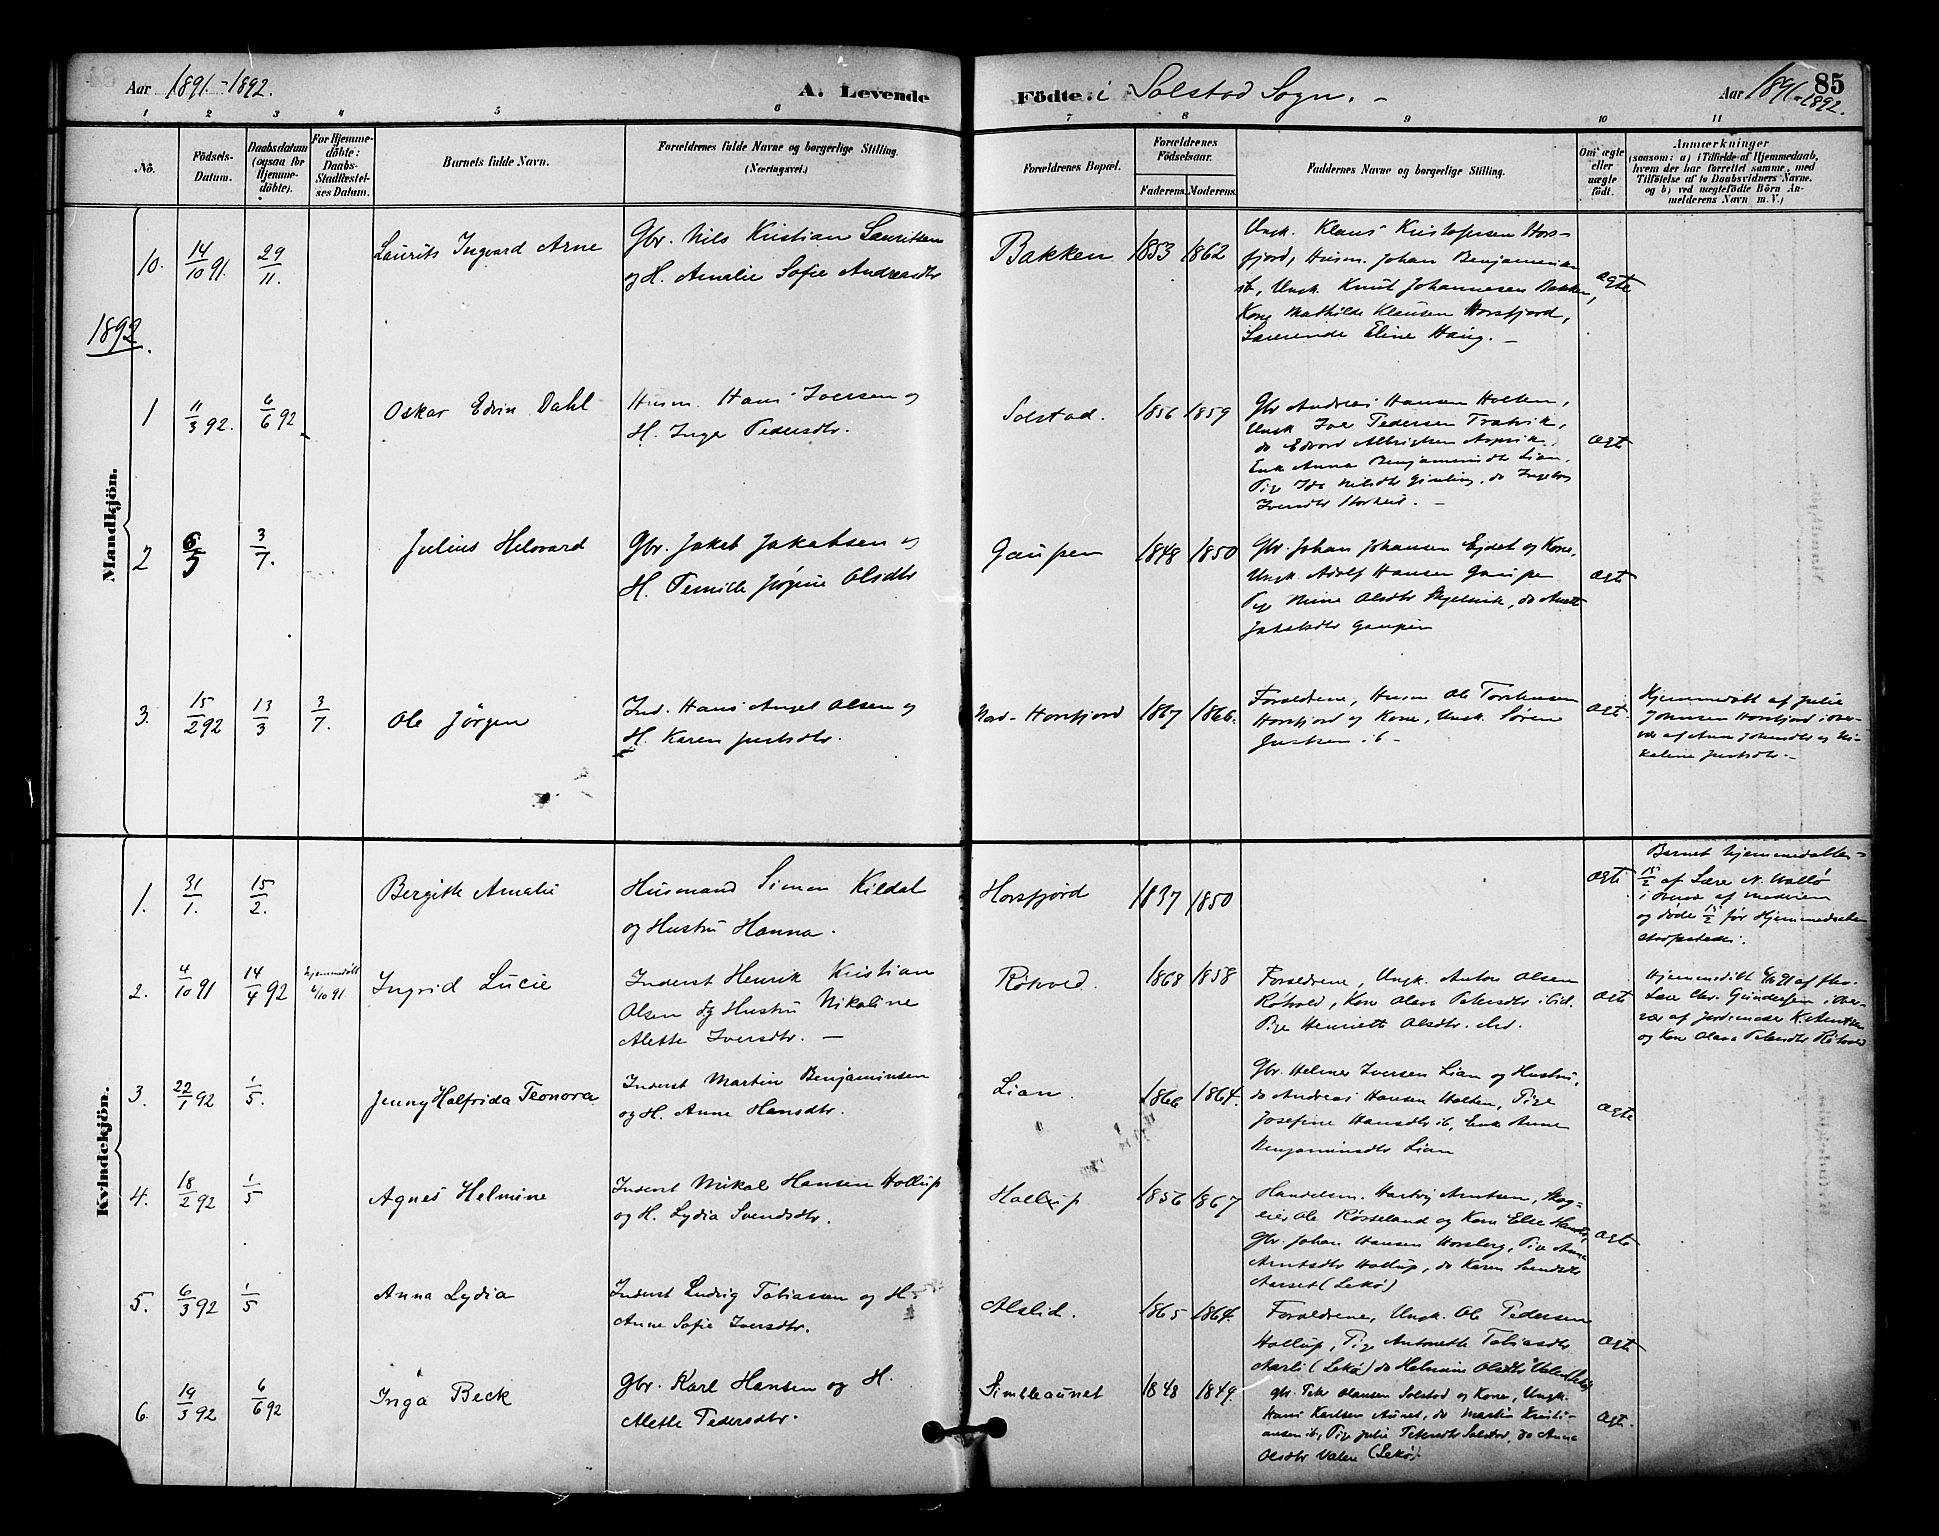 Aar 1891-1892.
A. Levende
Födte: i Solstad Sogn. -
Aar 1891-1892.
85
1 2 3 4 5 6 7 8 9 10 11
No.
Födsels-
Datum.
Daabsdatum
(ogsaa for
Hjemme-
döbte).
For Hjemme-
döbte:
Daabs-
Stadfæstel-
ses Datum.
Barnets fulde Navn.
Forældrenes fulde Navne og borgerlige Stilling.
(Næringsvei.)
Forældrenes Bopæl.
Forældrenes
Födselsaar.
Faderens. Moderens.
Faddernes Navne og borgerlige Stilling.
Om ægte
eller
uægte
födt.
Anmærkninger
(saasom: a) i Tilfælde af Hjemmedaab,
hvem der har forrettet samme, med
Tilföielse af to Daabsvidners Navne,
og b) ved uægtefödte Börn An-
melderens Navn m. V.)
Mandkjön.
10. 14/10 91. 29/11.
Laurits Ingvard Arne
Gbr. Nils Kristian Lauritsen
og H. Amalie Sofie Andreasdtr
Bakken 1853 1862
Ungk. Klaus Kristofersen Hors-
fjord, Husm. Johan Benjaminsen
ib, Ungk. Knut Johannesen Bakken,
Kone Mathilde Klausen Horsfjord,
Lærerinde Eline Haug. -
ægte
1892.
1 11/3 92. 6/6 92
Oskar Edvin Dahl
Husm. Hans Iversen og
H. Inga Pedersdtr.
Solstad. 1856 1859
Gbr Andreas Hansen Holten,
Ungk Iver Pedersen
do Edvard Albrigtsen
Enk Anna Benjaminsdtr Lian,
Pige Ida Nilsdtr do Ingeborg
Iversdtr
ægte
2 6/5 3/7.
Julius Helvard
Gbr. Jakob Jakobsen og
H. Pernille Jørgine Olsdtr
Gaupen 1848 1850
Gbr. Johan Johansen Eidet og Kone,
Ungk. Adolf Hansen Gaupen
Pige Mine Olsdtr do Anette
Jakobsdtr Gaupen
ægte
3. 15/2 92 13/3 3/7.
Ole Jörgen
Ind. Hans Angel Olsen og
H. Karen Justsdtr.
Nord-Horsfjord 1867 1866.
Forældrene, Husm Ole Torstensen
Horsfjord og Kone, Ungk. Sören
Justsen ib -
ægte.
Hjemmedøbt af Julie
Johansen Horsfjord i over-
vær af Anna Johansdtr og Ni-
koline Justsdtr. -
Kvindekjön.
1. 31/1. 15/2.
Bergitte Amalie
Husmand Simon Kildal
og Hustru Hanna.
Horsfjord 1837 1850
ægte
Barnet hjemmedøbtes
15/2 af Lære N. Hallø
i Overvær af Moderen
og døde 15/2 før Hjemmedaaben
2. 4/10 91 14/4 92 Hjemmedøbt 6/10 91
Ingrid Lucie
Inderst Henrik Kristian
Olsen og Hustru Nikoline
Alette Iversdtr. -
Røtvold. 1868 1858
Forældrene, Ungk. Anton Olsen
Røtvold, Kone Olava Petersdtr ibid.
Pige Henriette Olsdtr. ibid.
ægte
Hjemmedøbt 6/10 91 af fhv.
Lære Chr. Gundersen i Over-
vær af Jordemoder K. Arntsen
og Kone Olava Petersdtr Røtvold
3. 22/1 92 1/5.
Jenny Halfrida Teonora
Inderst Martin Benjaminsen
og H. Anne Hansdtr.
Lian. 1866 1864.
Gbr. Helmer Iversen Lian og Hustru,
do Andreas Hansen Holten, Pige
Josefine Hansdtr ib, Enke Anne
Benjaminsdtr Lian
ægte
4. 18/2 92 1/5
Agnes Helmine
Inderst Mikal Hansen Hollup
og H. Lydia Svendsdtr.
Hollup 1856 1867
Handelsm. Hartvig Arntsen, Skog-
eier Ole Rørseland og Kone Else Hansdtr,
Gbr. Johan Hansen Horsberg, Pige Anna
Arntsdtr Hollup, do Karen Svendsdtr
Aarset (Lekø)
ægte
5. 6/3 92 1/5
Anna Lydia
Inderst Ludvig Tobiassen og H.
Anne Sofie Iversdtr.
Alslid. 1865 1864.
Forældrene, Ungk. Ole Pedersen
Hollup, Pige Antonette Tobiasdtr
Aarli (Lekø) do Helmine Olsdtr Valen (Lekø)
ægte
6. 19/3 92 6/6 92
Inga Beck
Gbr. Karl Hansen og H.
Alette Pedersdtr.
Simleaunet 1848 1849.
Gbr. Peter Olausen Solstad og Kone, Ungk.
Hans Karlsen Aunet, do Martin Kristi-
ansen ib, Pige Julie Petersdtr Solstad, do Anna
Olsdtr Valen (Lekø)
ægte.